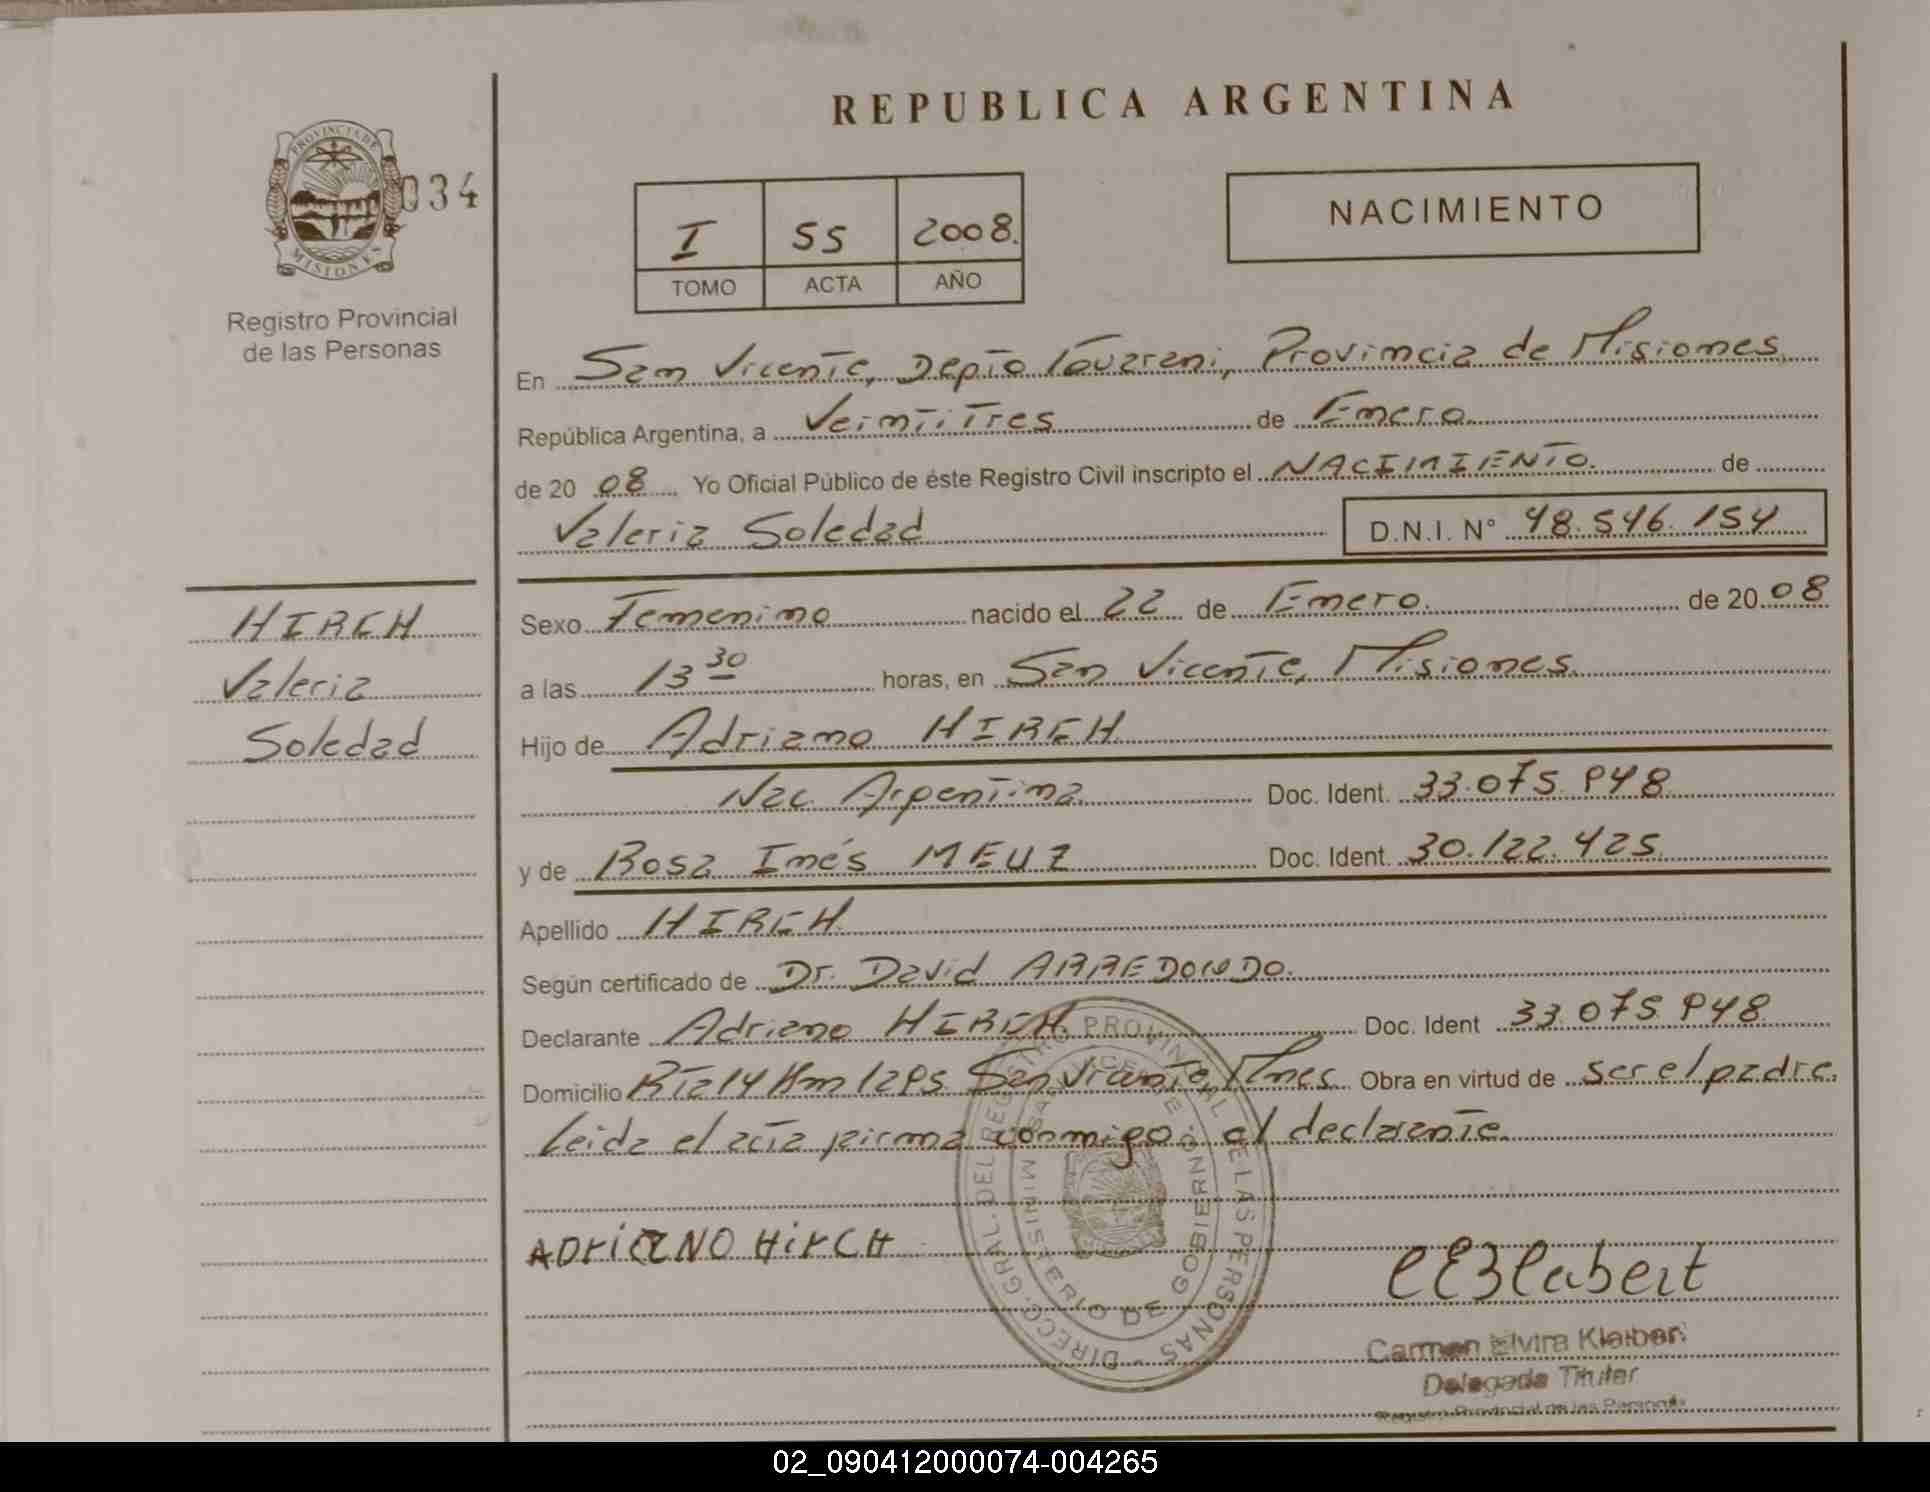 REPUBLICA ARGENTINA
PROVINCIA DE
MISIONES
034
Registro Provincial
de las Personas
I 55 2008.
TOMO ACTA AÑO
NACIMIENTO
En San Vicente, Depto Guarani, Provincia de Misiones,
República Argentina, a Veintitres de Enero
de 20 08 Yo Oficial Público de éste Registro Civil inscripto el NACIMIENTO. de
Valeria Soledad D.N.I. N° 48.546.154
HIRCH
Valeria
Soledad
Sexo Femenino nacido el 22 de Enero. de 20 08
a las 13 30 horas, en San Vicente, Misiones.
Hijo de Adriano HIRCH
Nac. Argentina Doc. Ident. 33.075.948
y de Rosa Inés MEUZ Doc. Ident. 30.122.425
Apellido HIRCH
Según certificado de Dr. David ARREDONDO.
Declarante Adriano HIRCH Doc. Ident 33.075.948
Domicilio Rta 14 Km 1295 San Vicente, Mnes. Obra en virtud de ser el padre.
Leida el acta firma conmigo: el declarante.
ADriaNO HirCH
DIRECC. GRAL. DEL REGISTRO PROVINCIAL DE LAS PERSONAS
SAN VICENTE
MINISTERIO DE GOBIERNO
Carmen Elvira Kleiber
Delegada Titular
Registro Provincial de las Personas
02_090412000074-004265